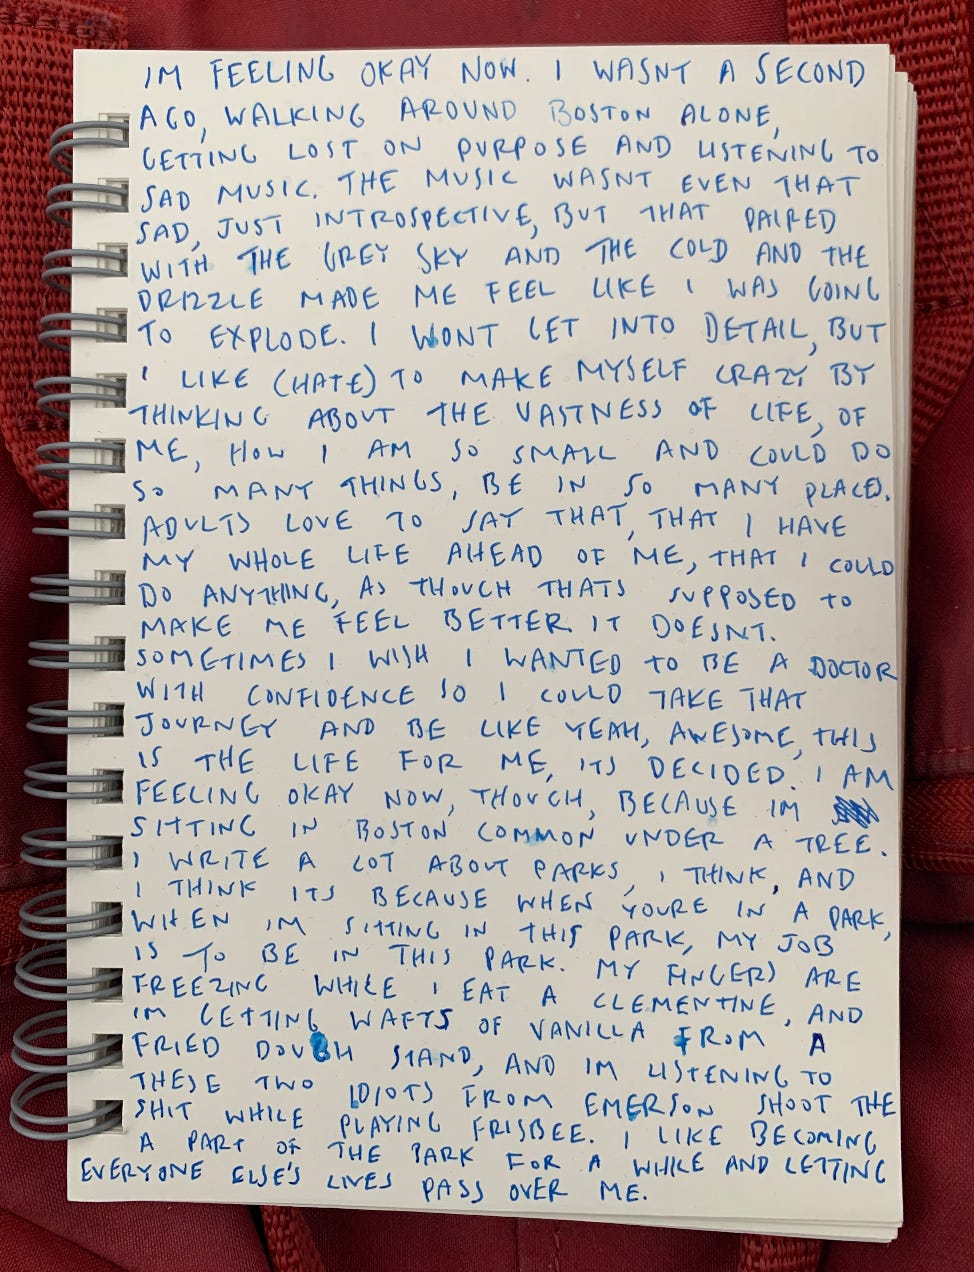 IM FEELING OKAY NOW. I WASNT A SECOND
AGO, WALKING AROUND BOSTON ALONE,
GETTING LOST ON PURPOSE AND LISTENING TO
SAD MUSIC. THE MUSIC WASNT EVEN THAT
SAD, JUST INTROSPECTIVE, BUT THAT PAIRED
WITH THE GREY SKY AND THE COLD AND THE
DRIZZLE MADE ME FEEL LIKE I WAS GOING
TO EXPLODE. I WONT GET INTO DETAIL, BUT
I LIKE (HATE) TO MAKE MYSELF CRAZY BY
THINKING ABOUT THE VASTNESS OF LIFE, OF
ME, HOW I AM SO SMALL AND COULD DO
SO MANY THINGS, BE IN SO MANY PLACES.
ADULTS LOVE TO SAY THAT, THAT I HAVE
MY WHOLE LIFE AHEAD OF ME, THAT I COULD
DO ANYTHING, AS THOUGH THATS SUPPOSED TO
MAKE ME FEEL BETTER. IT DOESNT.
SOMETIMES I WISH I WANTED TO BE A DOCTOR
WITH CONFIDENCE SO I COULD TAKE THAT
JOURNEY AND BE LIKE YEAH, AWESOME, THIS
IS THE LIFE FOR ME, ITS DECIDED. I AM
FEELING OKAY NOW, THOUGH, BECAUSE IM
SITTING IN BOSTON COMMON UNDER A TREE.
I WRITE A LOT ABOUT PARKS, I THINK, AND
I THINK ITS BECAUSE WHEN YOURE IN A PARK,
WHEN IM SITTING IN THIS PARK, MY JOB
IS TO BE IN THIS PARK. MY FINGERS ARE
FREEZING WHILE I EAT A CLEMENTINE, AND
IM GETTING WAFTS OF VANILLA FROM A
FRIED DOUGH STAND, AND IM LISTENING TO
THESE TWO IDIOTS FROM EMERSON SHOOT THE
SHIT WHILE PLAYING FRISBEE. I LIKE BECOMING
A PART OF THE PARK FOR A WHILE AND LETTING
EVERYONE ELSE'S LIVES PASS OVER ME.